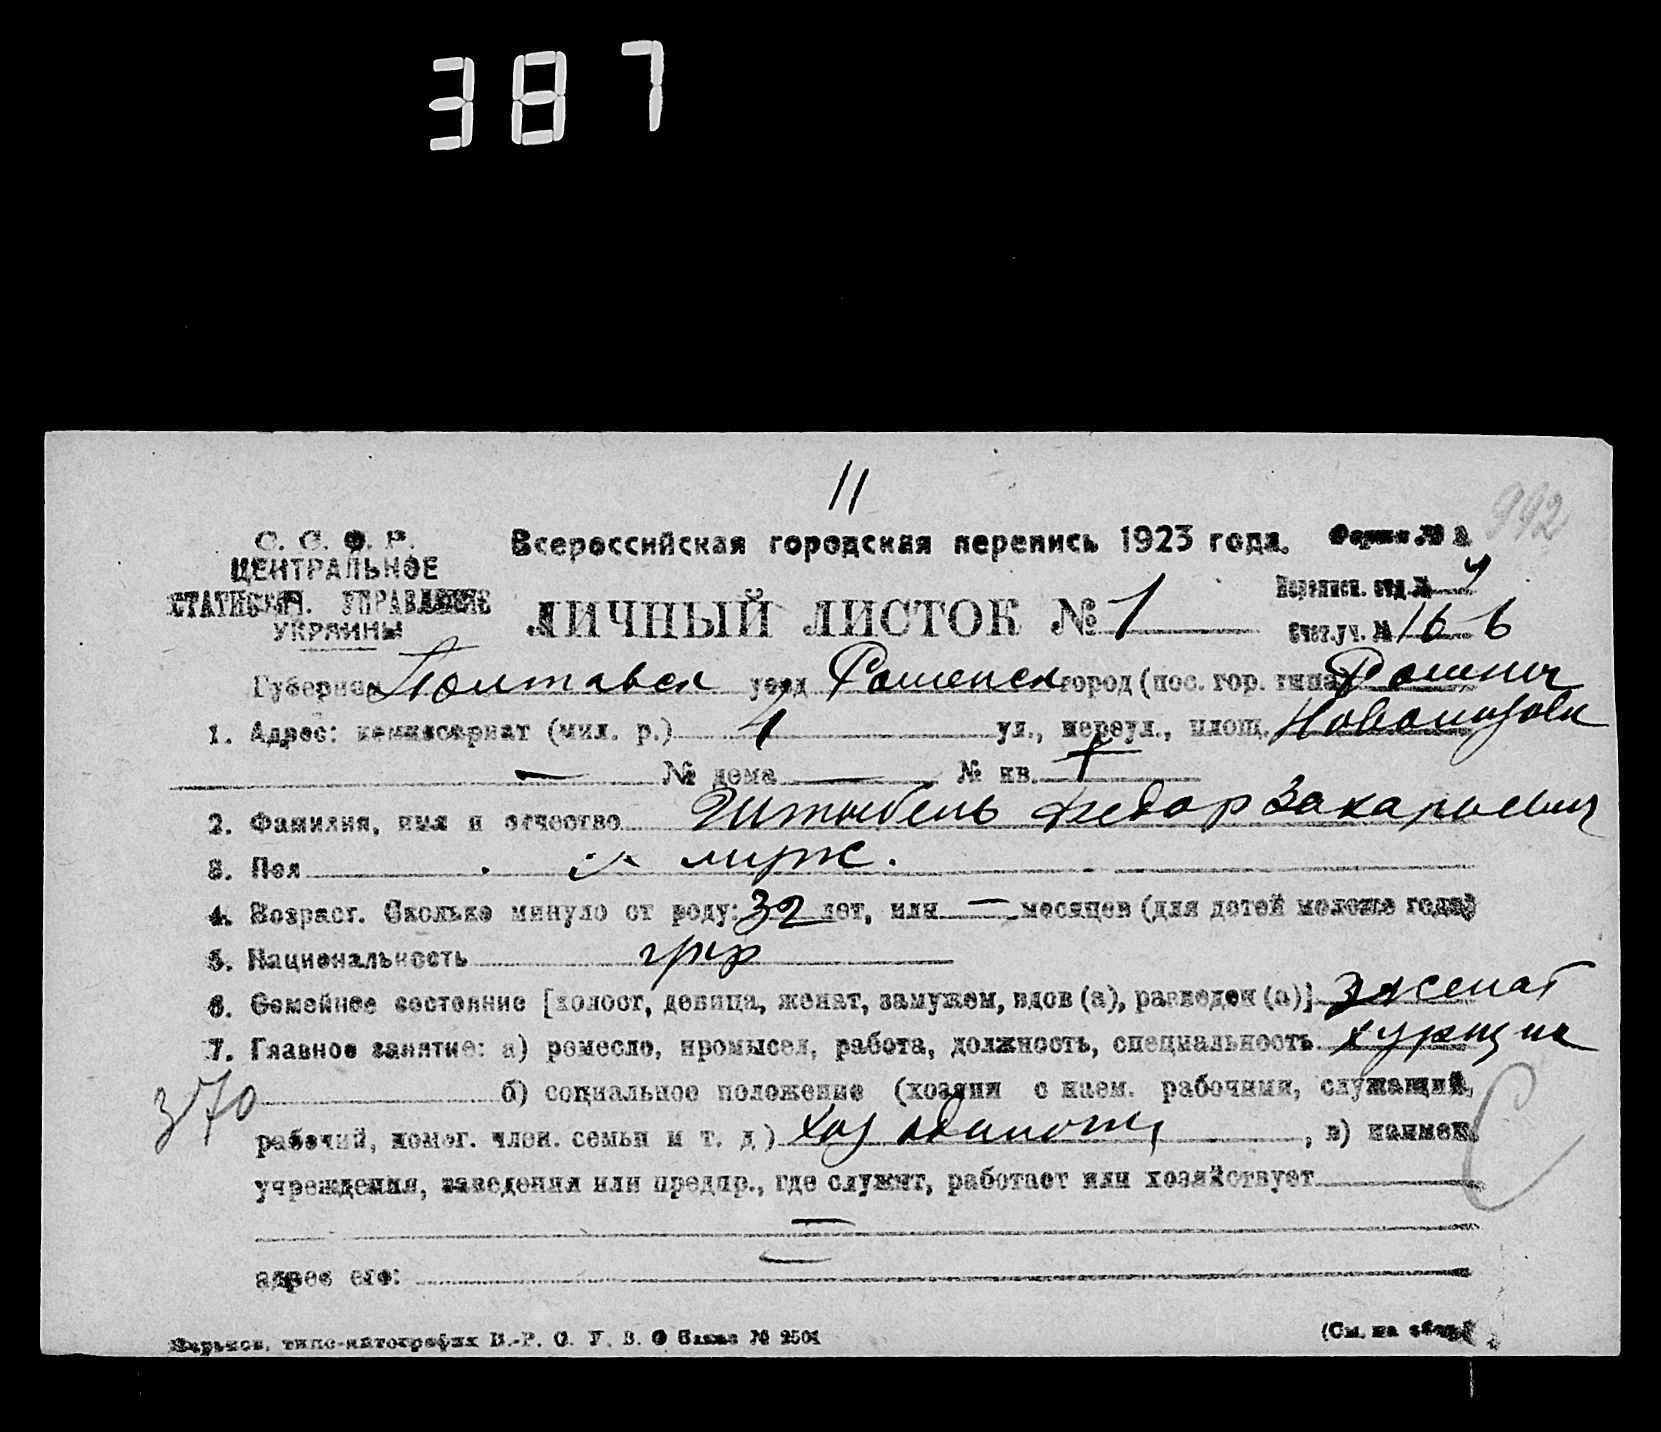 387
11
992
С. С. Ф. Р.
ЦЕНТРАЛЬНОЕ
СТАТИСТИЧ. УПРАВЛЕНИЕ
УКРАИНЫ
Всероссийская городская перепись 1923 года.
Форма № 2
ЛИЧНЫЙ ЛИСТОК № 1
Переписн. отд. №
Счет. уч. № 16-б
Губерния Полтавск уезд Роменск город (пос. гор. типа) Ромны
1. Адрес: комиссариат (мил. р.) 1 ул., переул., площ.
— № дома — № кв.
2. Фамилия, имя и отчество Федор Захарьевич
3. Пол муж.
4. Возраст. Сколько минуло от роду: 32 лет, или — месяцев (для детей моложе года)
5. Национальность
6. Семейное состояние [холост, девица, женат, замужем, вдов (а), разведен (а)] женат
7. Главное занятие: а) ремесло, промысел, работа, должность, специальность
370 б) социальное положение (хозяин с наем. рабочими, служащий,
рабочий, помог. член. семьи и т. д.) хоз одиночн, в) наимен.
учреждения, заведения или предпр., где служит, работает или хозяйствует
адрес его:
Харьков, типо-литография В.-Р. С. У. В. О Заказ № 2501
(См. на обор.)